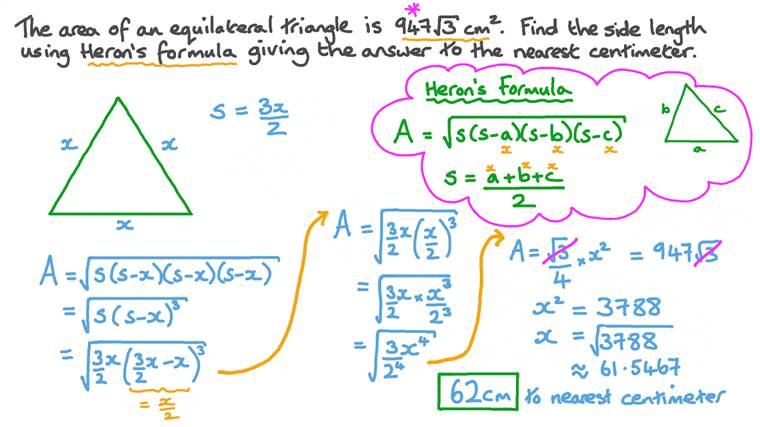 The area of an equilateral triangle is 947√3 cm². Find the side length
using Heron's formula giving the answer to the nearest centimeter.
*
x
x
x
s = 3x/2
Heron's Formula
A = √(s(s-a)(s-b)(s-c))
x x x
s = (a+b+c)/2
x x x
b
c
a
A = √(s(s-x)(s-x)(s-x))
= √(s(s-x)³)
= √(3/2 x(3/2 x - x)³)
= x/2
A = √(3/2 x(x/2)³)
= √(3/2 x × x³/2³)
= √(3x⁴/2⁴)
A = √3/4 × x² = 947√3
x² = 3788
x = √3788
≈ 61.5467
62cm to nearest centimeter